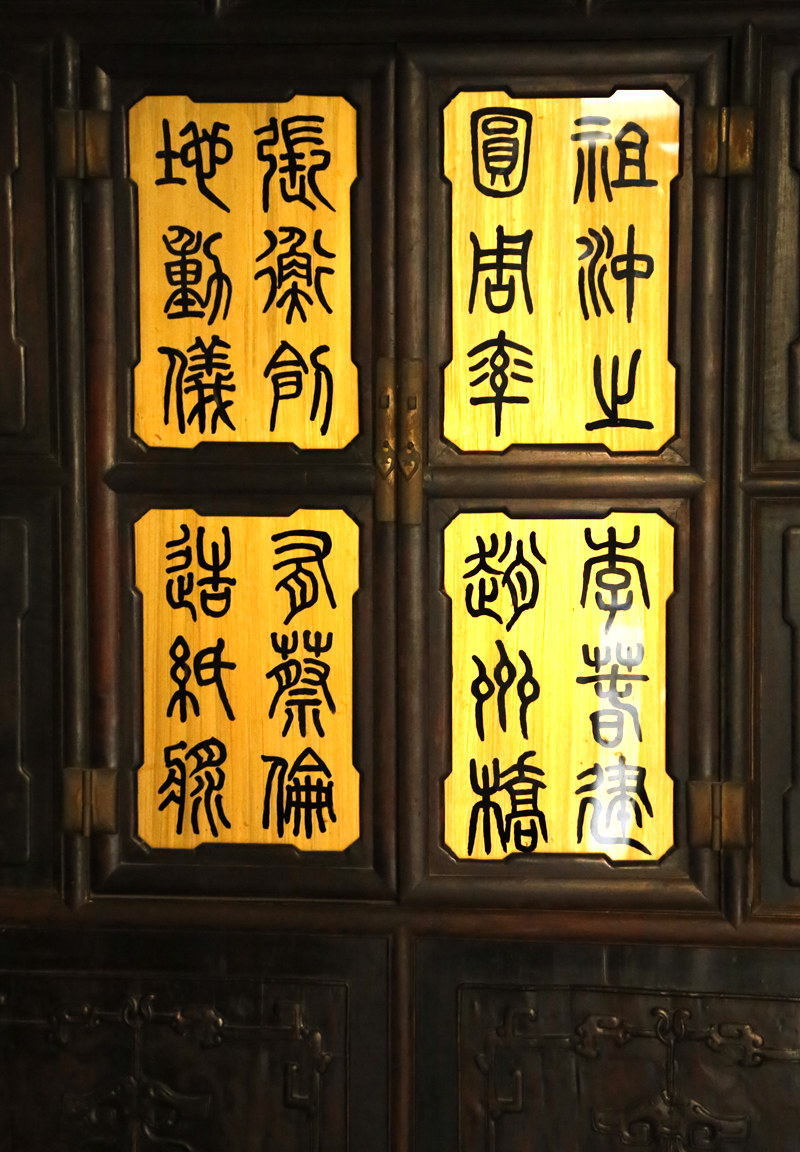 祖沖之
圓周率
張衡創
地動儀
李春建
趙州橋
有蔡倫
造紙